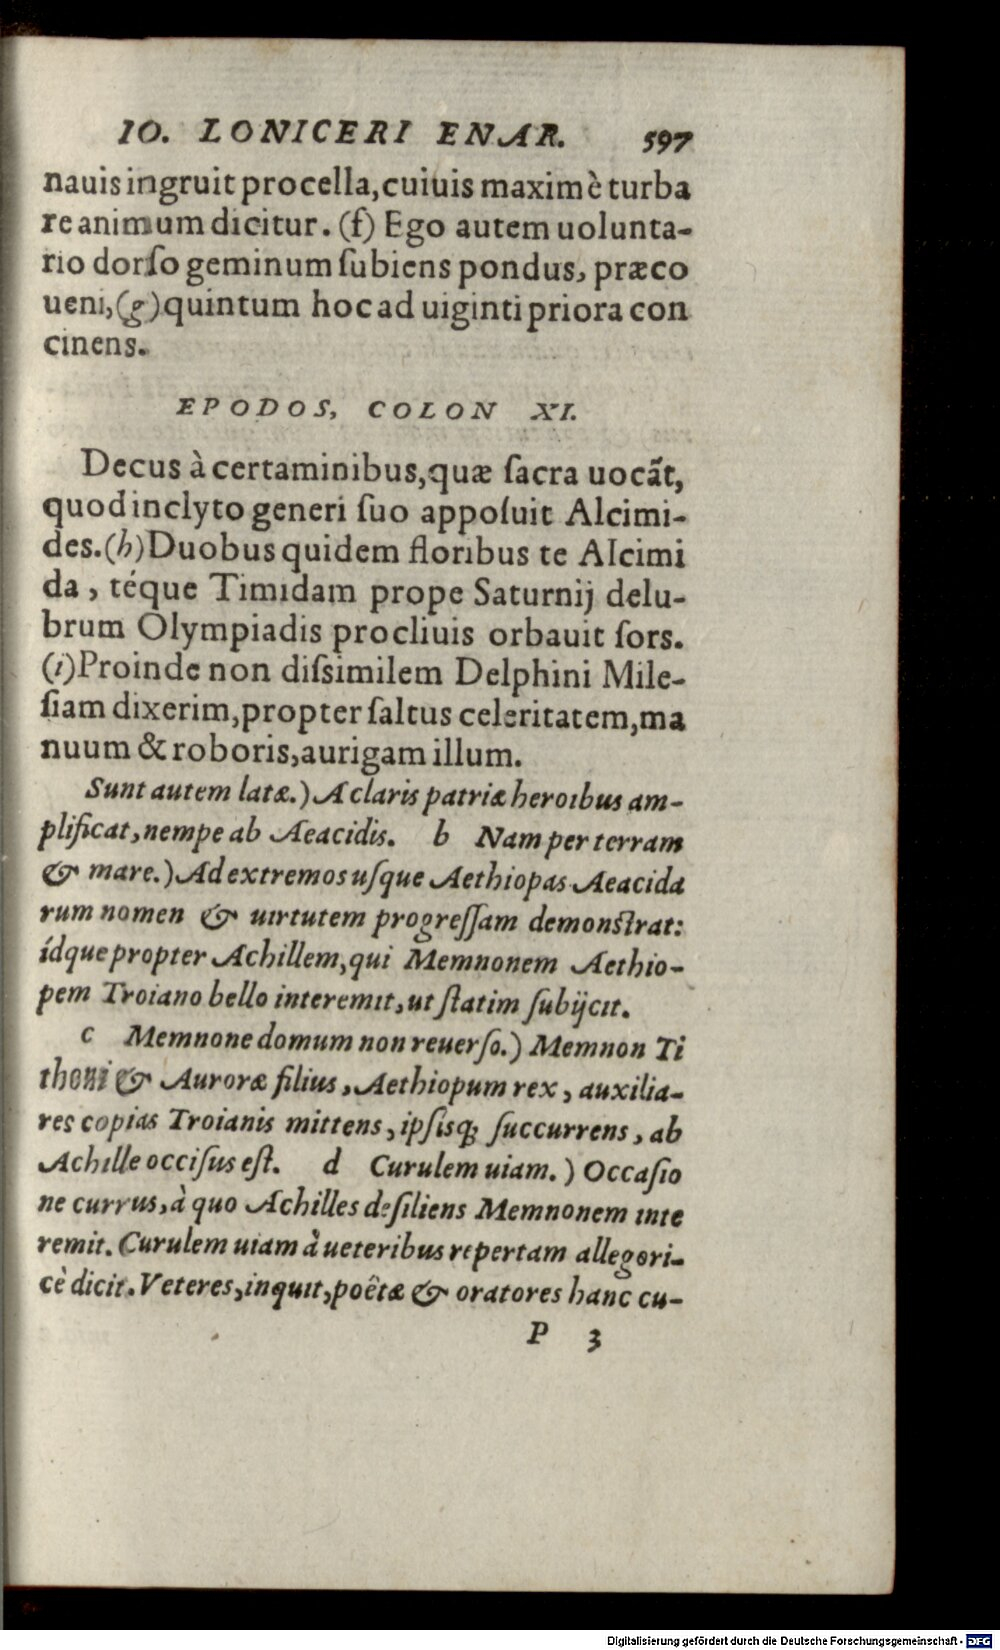 IO. LONICERI ENAR. 597
nauis ingruit procella, cuiuis maximè turba
re animum dicitur. (f) Ego autem uolunta-
rio dorſo geminum ſubiens pondus, præco
ueni, (g) quintum hoc ad uiginti priora con
cinens.
EPODOS, COLON XI.
Decus à certaminibus, quæ ſacra uocãt,
quod inclyto generi ſuo appoſuit Alcimi-
des. (h) Duobus quidem floribus te Alcimi
da, téque Timidam prope Saturnij delu-
brum Olympiadis procliuis orbauit ſors.
(i) Proinde non diſsimilem Delphini Mile-
ſiam dixerim, propter ſaltus celeritatem, ma
nuum & roboris, aurigam illum.
Sunt autem latæ.) A claris patriæ heroibus am-
plificat, nempe ab Aeacidis. b Nam per terram
& mare.) Ad extremos uſque Aethiopas Aeacida
rum nomen & uirtutem progreſſam demonſtrat:
ídque propter Achillem, qui Memnonem Aethio-
pem Troiano bello interemit, ut ſtatim ſubijcit.
c Memnone domum non reuerſo.) Memnon Ti
thoni & Auroræ filius, Aethiopum rex, auxilia-
res copias Troianis mittens, ipſisq́; ſuccurrens, ab
Achille occiſus eſt. d Curulem uiam.) Occaſio
ne currus, à quo Achilles deſiliens Memnonem inte
remit. Curulem uiam à ueteribus repertam allegori-
cè dicit. Veteres, inquit, poêtæ & oratores hanc cu-
P 3
Digitalisierung gefördert durch die Deutsche Forschungsgemeinschaft - DFG